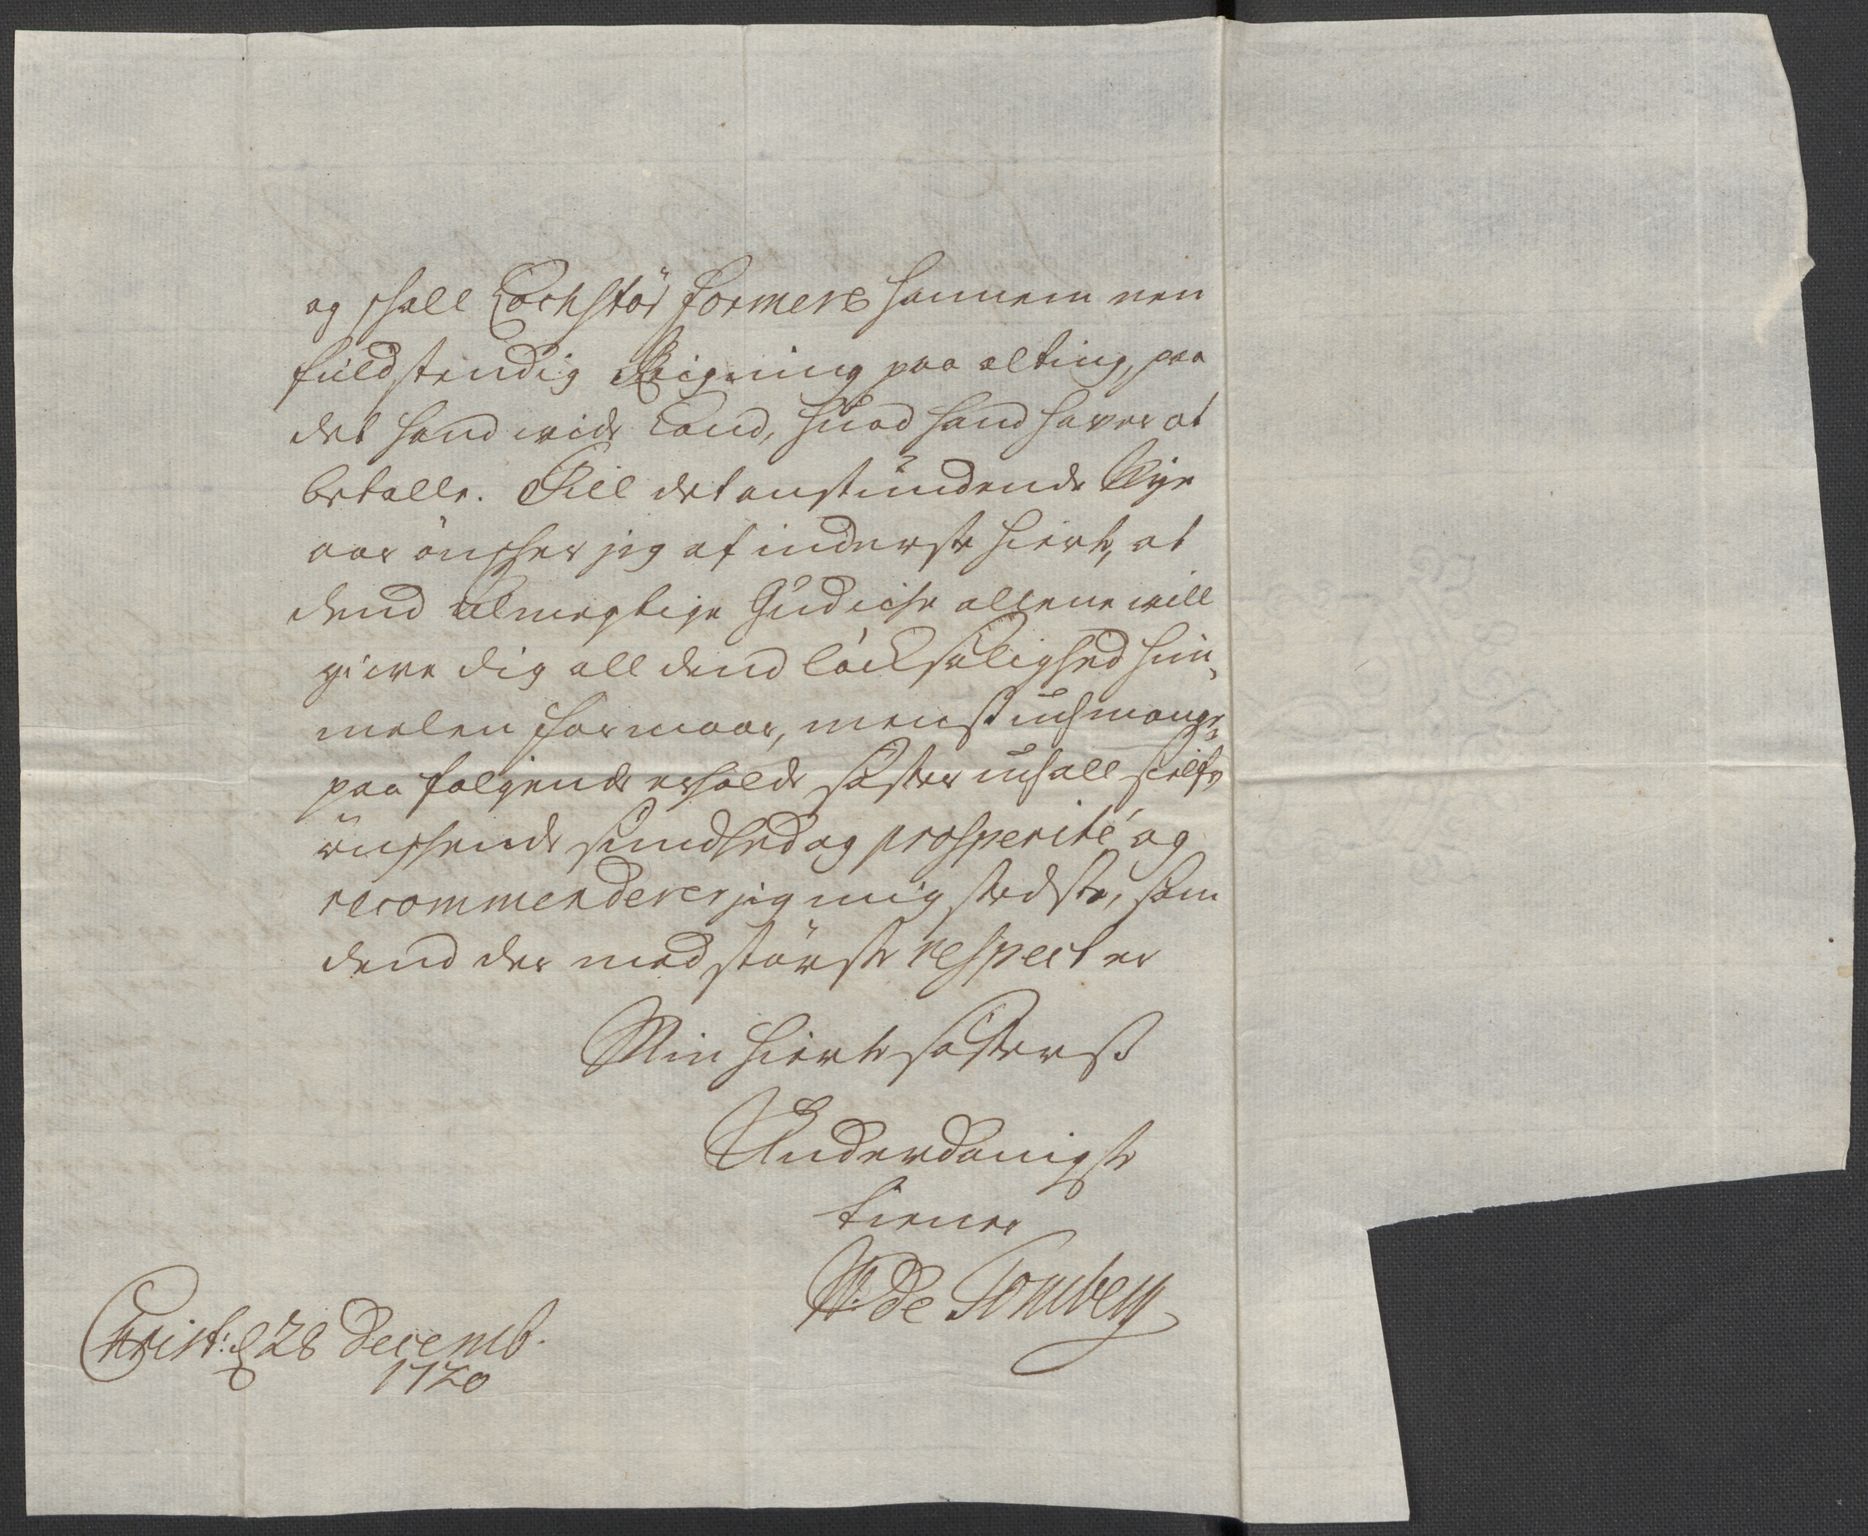 og skall Lochstör formere hannem een
fuldstendig Reigning paa alting, paa
det hand wide kand, huad hand haver at
betalle. Till det anstundende Nye
aar önscher jeg af inderste hierte, at
dend Almegtige Gud iche allene will
giwe dig all dend löcksalighed him¬
melen formaar, menst uch mange
paa fölgende erholde söster uch all sielf
önschende sundhed og prosperité og
recommenderer jeg mig stedste, som
dend der med störste respect er
Min hierte söster ß
Underdanigste
tiener
W: de Tonsberg
Christ: d 28 Decemb.
1720